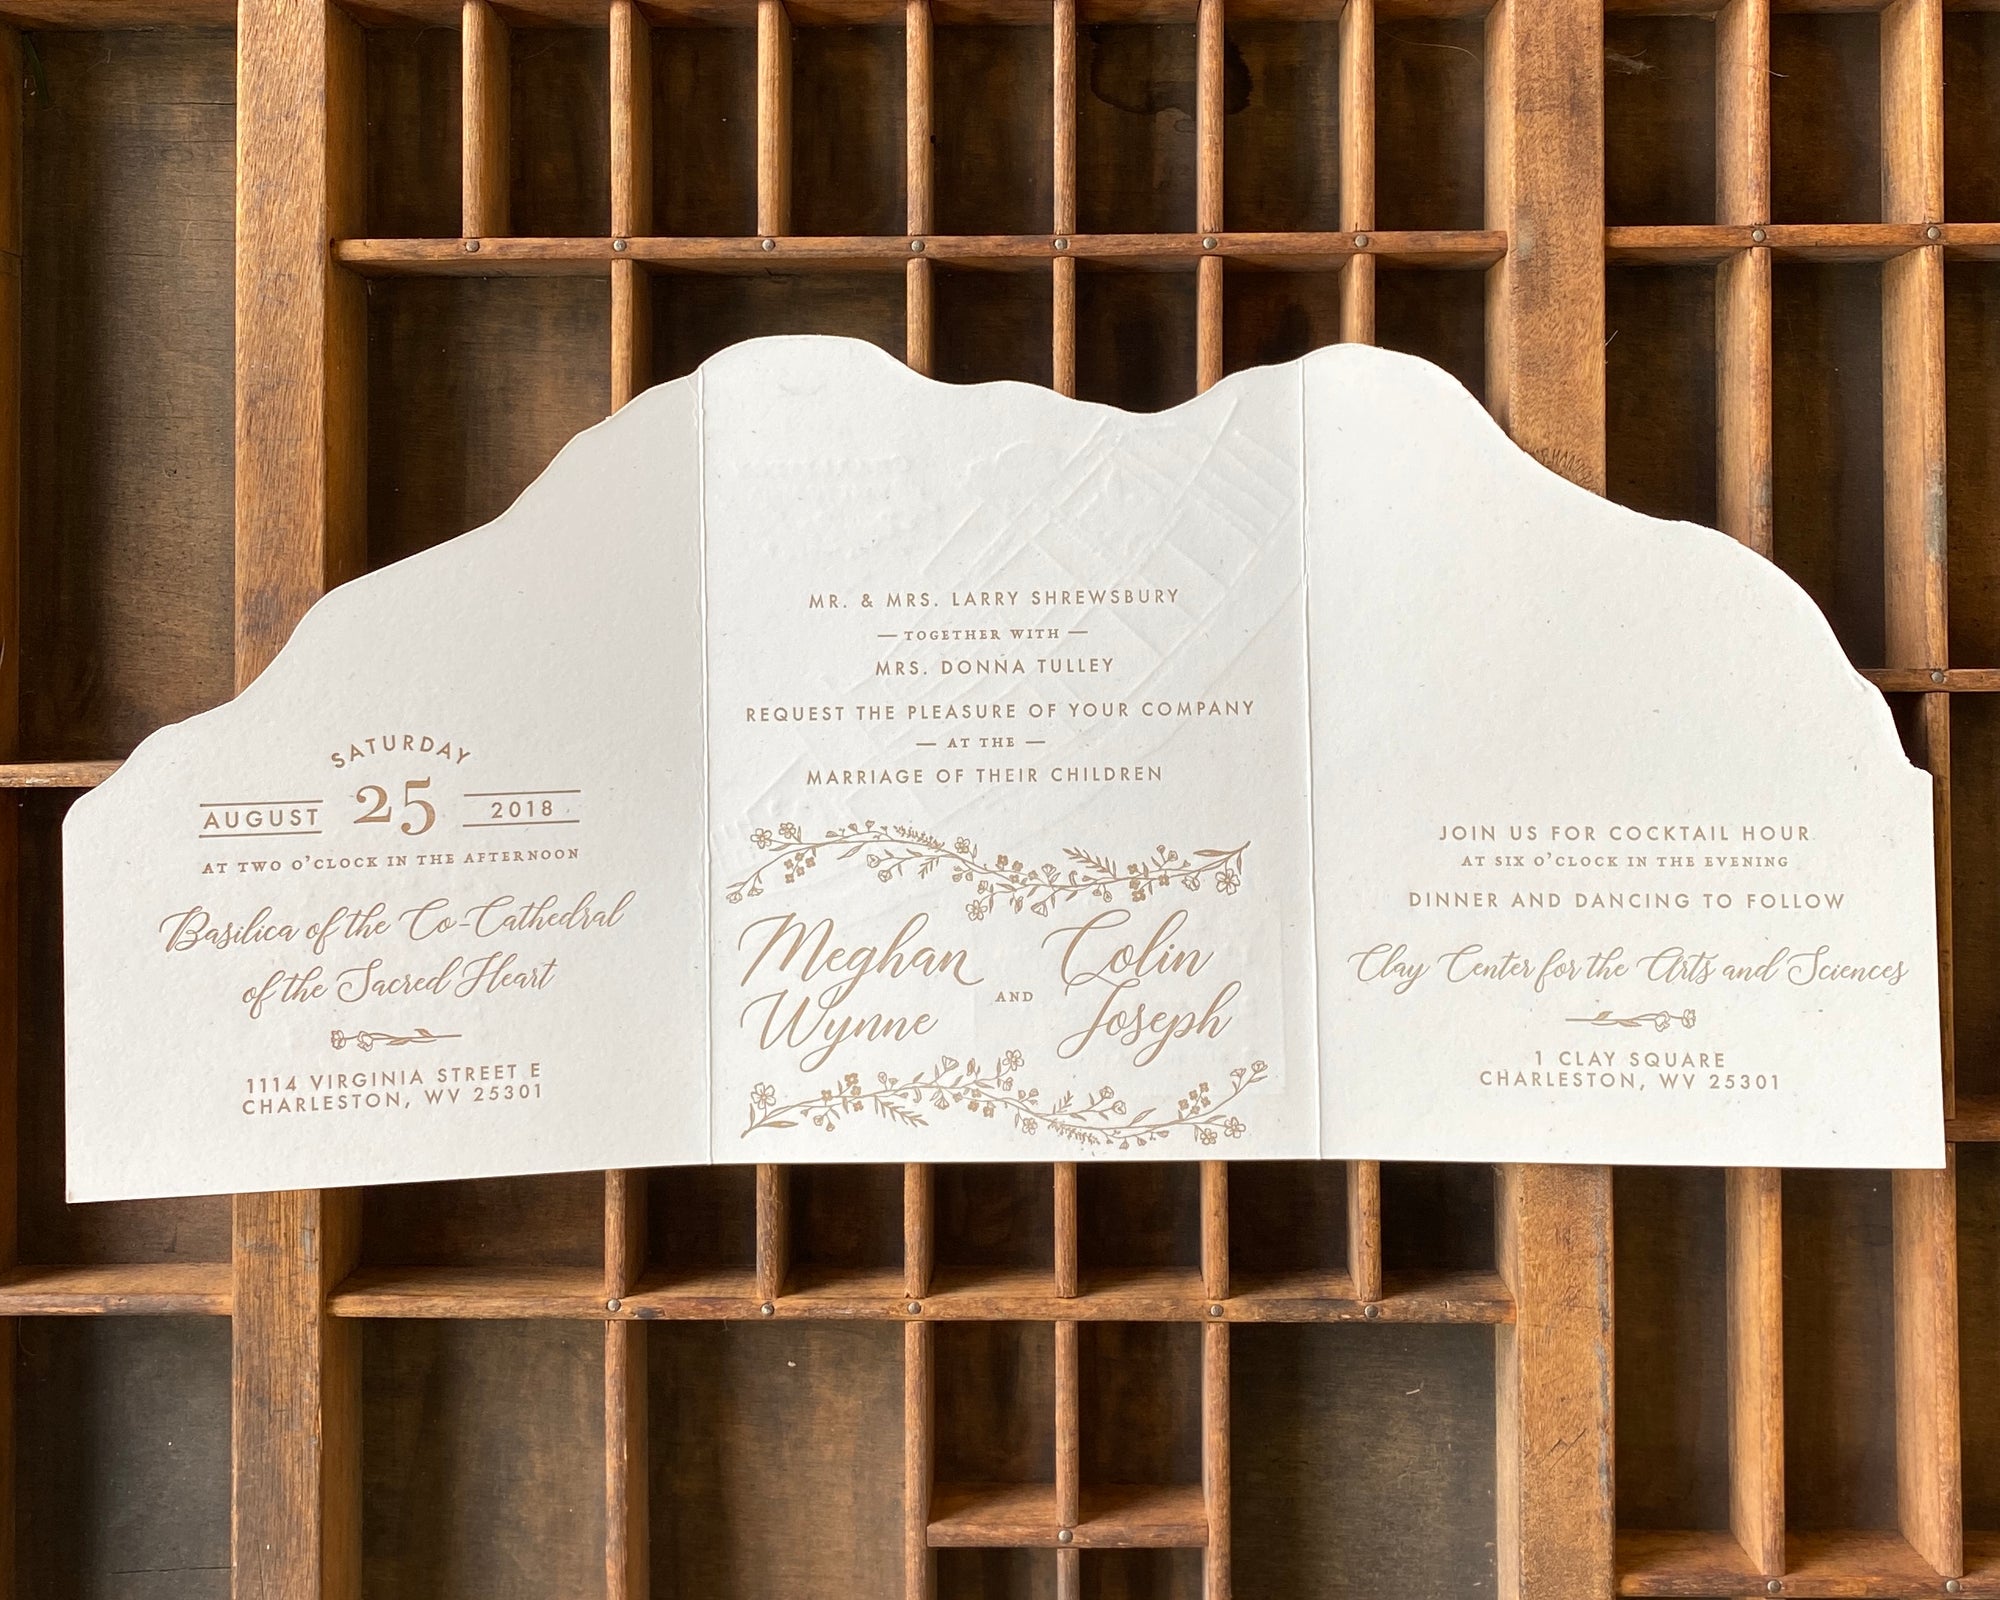 SATURDAY
AUGUST 25 2018
AT TWO O'CLOCK IN THE AFTERNOON
Basilica of the Co-Cathedral
of the Sacred Heart
1114 VIRGINIA STREET E
CHARLESTON, WV 25301
MR. & MRS. LARRY SHREWSBURY
— TOGETHER WITH —
MRS. DONNA TULLEY
REQUEST THE PLEASURE OF YOUR COMPANY
— AT THE —
MARRIAGE OF THEIR CHILDREN
Meghan Wynne
AND
Colin Joseph
JOIN US FOR COCKTAIL HOUR
AT SIX O'CLOCK IN THE EVENING
DINNER AND DANCING TO FOLLOW
Clay Center for the Arts and Sciences
1 CLAY SQUARE
CHARLESTON, WV 25301